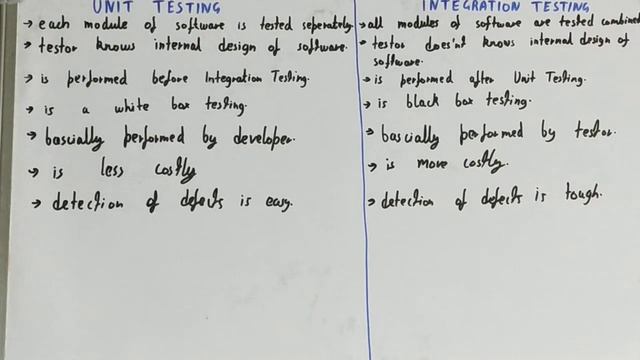 UNIT TESTING
→ each module of software is tested seperately.
→ testor knows internal design of software.
→ is performed before Integration Testing.
→ is a white box testing.
→ bascially performed by developer.
→ is less costly
→ detection of defects is easy.
INTEGRATION TESTING
→ all modules of software are tested combined
→ testor does'nt knows internal design of
software.
→ is performed after Unit Testing.
→ is black box testing.
→ bascially performed by testor.
→ is more costly.
→ detection of defects is tough.